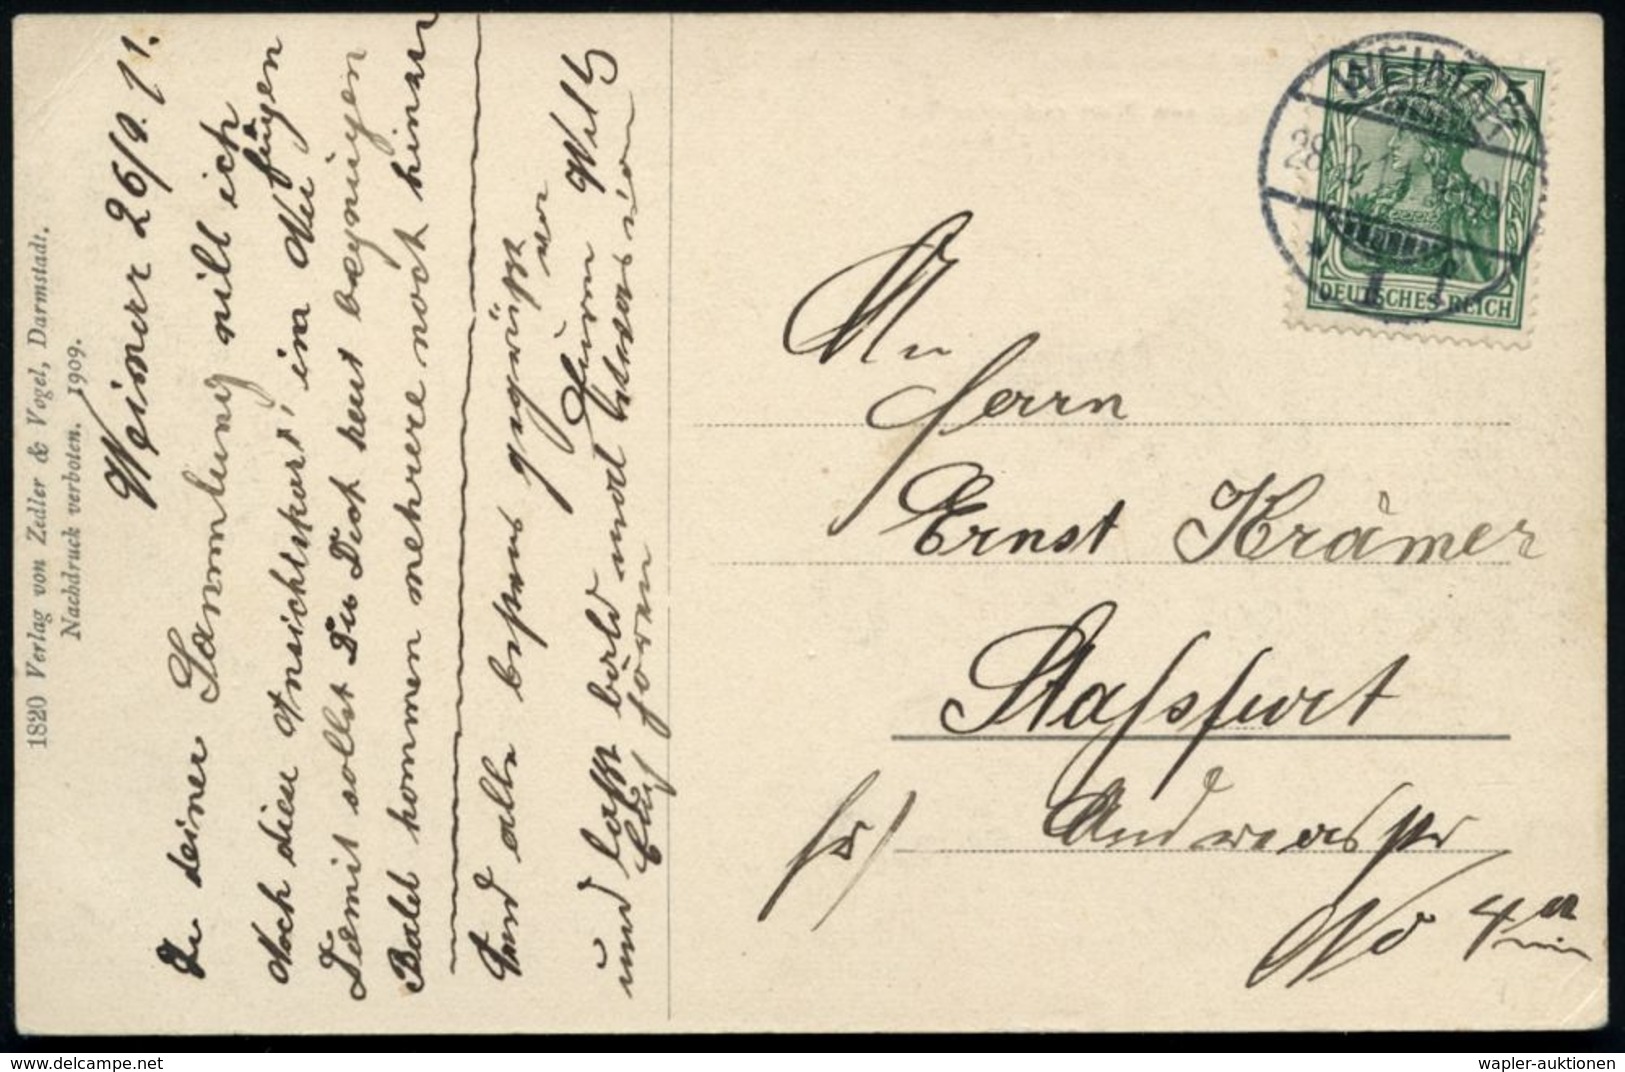 1820 Verlag von Zedler & Vogel, Darmstadt.
Nachdruck verboten. 1909.
Weimar 26/2. 11.
Zu deiner Sammlung will ich
Noch diese Ansichtskart' im bei fügen
Damit sollst Du Dich heut begnügen
Bald kommen mehrere noch hinaus
Und alle bestens gegrüsst von
Willy
und lasst bald mal etwas von
Euch hören
WEIMAR
28.2.11
1
DEUTSCHES REICH
An
Herrn
Ernst Krämer
Stassfurt
Andreasstr
No 4
wapler-auktionen
www.delcampe.net